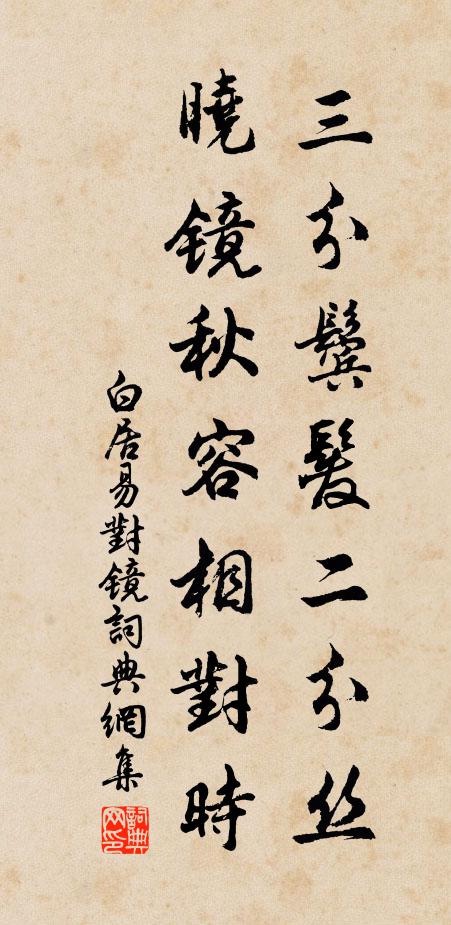 三分鬓髮二分丝
曉镜秋容相對時
白居易對镜詞典網集
詞典网印